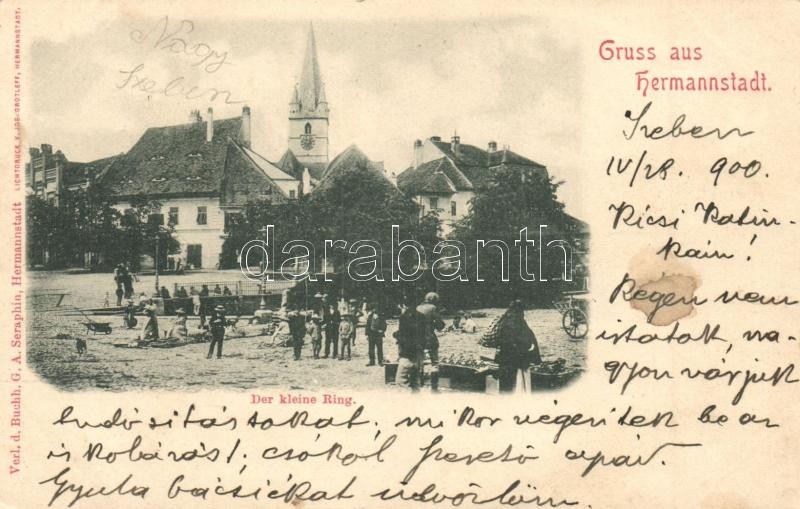 Gruss aus
Hermannstadt.
Nagy
Szeben
Szeben
IV/28. 900.
Kicsi Katin-
kám!
Régen nem
irtatok, na-
gyon várjuk
tudósitásokat, mikor végeztek be az
iskolázást. csókol szerető apád.
Gyula bácsiékat üdvözlöm.
Der kleine Ring.
Verl. d. Buchh. G. A. Seraphin, Hermannstadt
LICHTDRUCK V. JOS. DROTLEFF, HERMANNSTADT.
darabanth